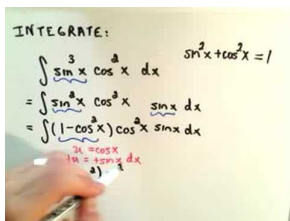 INTEGRATE:
sin²x + cos²x = 1
∫ sin³x cos²x dx
= ∫ sin²x cos²x sinx dx
= ∫(1-cos²x) cos²x sinx dx
u = cosx
du = +sinx dx
²) ²